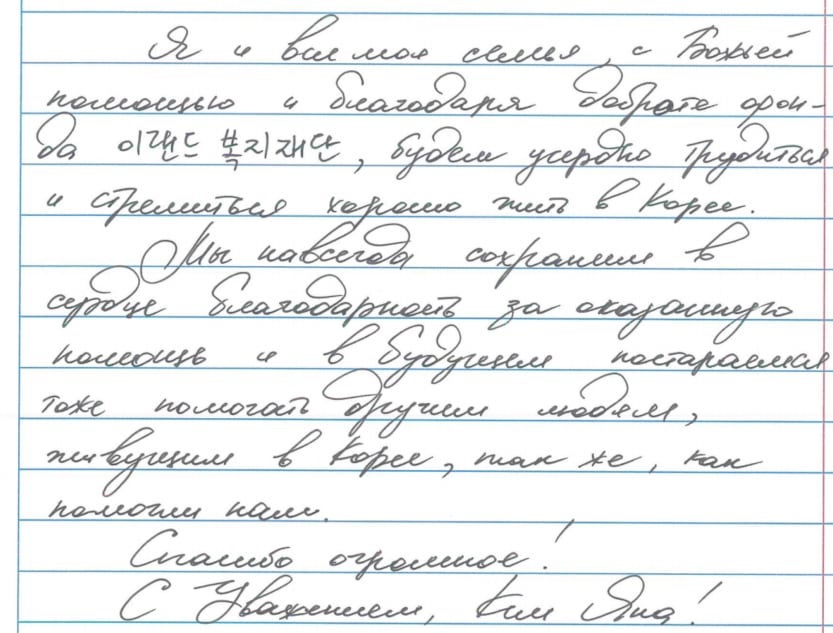 Я и вся моя семья, с Божьей
помощью и благодаря доброте фон-
да 이랜드 복지재단, будем усердно трудиться
и стремиться хорошо жить в Корее.
Мы навсегда сохраним в
сердце благодарность за оказанную
помощь и в будущем постараемся
тоже помогать другим людям,
живущим в Корее, так же, как
помогли нам.
Спасибо огромное!
С Уважением, Ким Яна!